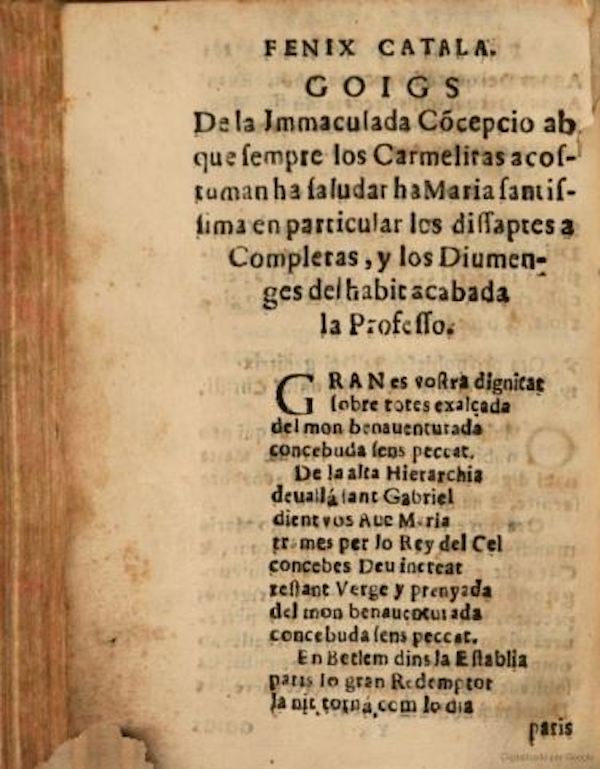 FENIX CATALA.
GOIGS
De la Jmmaculada Cõcepcio ab
que ſempre los Carmelitas acoſ-
tuman ha ſaludar ha Maria ſantiſ-
ſima en particular los diſſaptes a
Completas, y los Diumen-
ges del habit acabada
la Profeſſo.
GRAN es voſtra dignitat
ſobre totes exalçada
del mon benauenturada
concebuda ſens peccat.
De la alta Hierarchia
deuallá ſant Gabriel
dient vos Aue Maria
trames per lo Rey del Cel
concebes Deu increat
reſtant Verge y prenyada
del mon benauenturada
concebuda ſens peccat.
En Betlem dins la Eſtablia
paris lo gran Redemptor
la nit torná com lo dia
paris
Digitalizado por Google